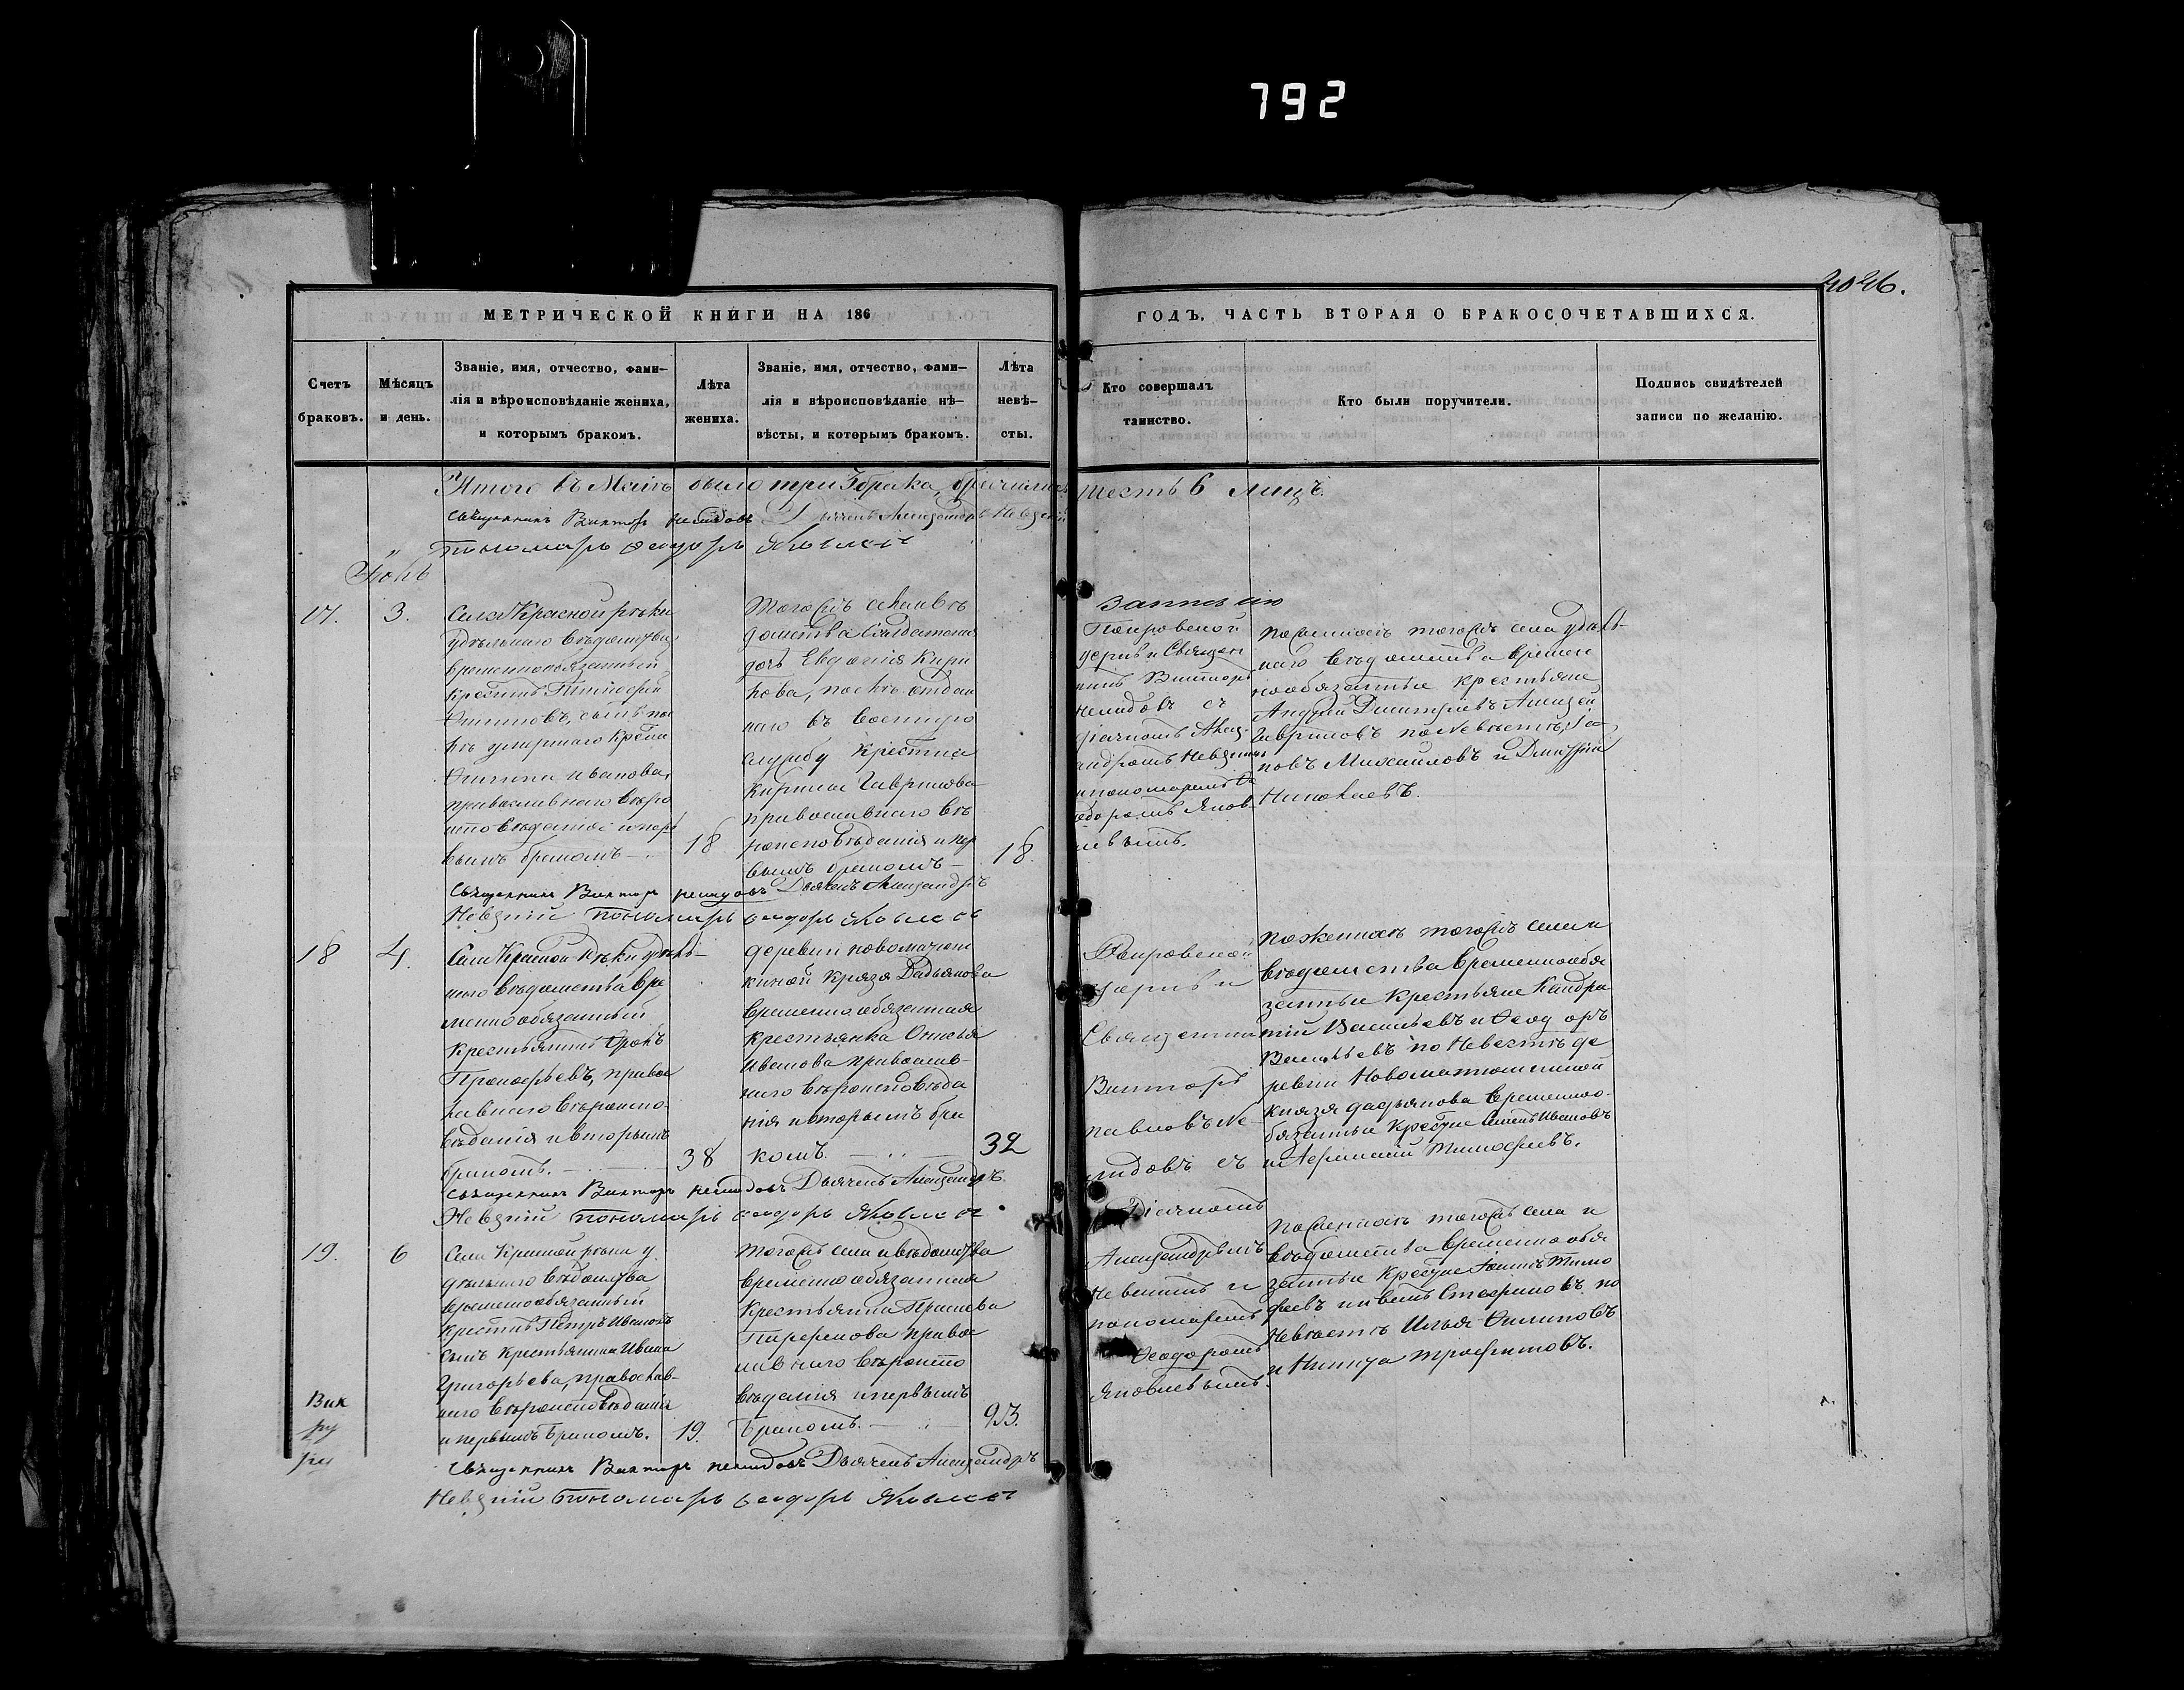 792
2026.
МЕТРИЧЕСКОЙ КНИГИ НА 186
ГОДЪ, ЧАСТЬ ВТОРАЯ О БРАКОСОЧЕТАВШИХСЯ.
Счетъ
браковъ.
Мѣсяцъ
и день.
Званіе, имя, отчество, фами-
лія и вѣроисповѣданіе жениха,
и которымъ бракомъ.
Лѣта
жениха.
Званіе, имя, отчество, фами-
лія и вѣроисповѣданіе нѣ-
вѣсты, и которымъ бракомъ.
Лѣта
невѣ-
сты.
Кто совершалъ
таинство.
Кто были поручители.
Подпись свидѣтелей
записи по желанію.
Итого въ Маіѣ было три 3 брака, брачившихся шесть 6 лицъ.
Священникъ Викторъ Нелидовъ Дьячекъ Александръ Невскій
Пономарь Ѳеодоръ Яковлевъ
Іюнь
17.
3.
Села Красной рѣки
удѣльнаго вѣдомства
временнообязанный
Крестнъ Тимофей
Филиповъ, сынъ пос
лѣ умершаго Крестна
Филипа Иванова,
православнаго вѣро
исповѣданія и пер
вымъ бракомъ
18
Тогожъ села и вѣ
домства Солдатская
дочь Евдокія Кири
лова, послѣ отдан
наго въ военную
службу Крестна
Кирила Гаврилова
православнаго вѣ
роисповѣданія и пер
вымъ бракомъ
18.
Записью
Покровской
церкви Священ
никъ Викторъ
Нелидовъ съ
діячкомъ Алек
андромъ Невскимъ
и пономаремъ Ѳе
одоромъ Яков
левымъ.
По женихѣ тогожъ села удѣль-
наго вѣдомства времен
нообязанные крестьяне
Андрей Димитріевъ Алексѣй
Гавриловъ по Невѣстѣ
Михаиловъ и Димитрій
Николаевъ.
Священникъ Викторъ Нелидовъ Дьячекъ Александръ
Невскій Пономарь Ѳеодоръ Яковлевъ
18
4.
Села Красной Рѣки удѣль-
наго вѣдомства вре
менно обязанный
Крестьянинъ Фролъ
Прокофьевъ, правос
лавнаго вѣроиспо
вѣданія и вторымъ
бракомъ.
38
деревни Новоматюш
киной Князя Дадьянова
временно обязанная
крестьянка
Иванова православ-
наго вѣроисповѣда
нія и вторымъ бра
комъ.
32
Покровской
церкви
Священникъ
Викторъ
Павловъ Не-
лидовъ съ
Діячкомъ
Александромъ
Невскимъ и
пономаремъ
Ѳеодоромъ
Яковлевымъ.
По женихѣ тогожъ села и
вѣдомства временнообя
занные крестьяне Кандра
тій Васильевъ и Ѳеодоръ
Васильевъ по Невестѣ де
ревни Новоматюшкиной
князя дадьянова временноо-
бязанные Семенъ Ивановъ
и Тимофеевъ.
Священникъ Викторъ Нелидовъ Дьячекъ Александръ
Невскій Пономарь Ѳеодоръ Яковлевъ
19.
6
Села Красной рѣки у
дѣльнаго вѣдомства
временнообязанный
Крестнъ Петръ Ивановъ
сынъ крестьянина Ивана
Григорьева, православ-
наго вѣроисповѣданія
и первымъ бракомъ.
19.
Тогожъ села и вѣдомства
временно обязанная
Крестьянка
православнаго вѣроиспо
вѣданія и первымъ
бракомъ.
По женихѣ тогожъ села и
вѣдомства временно обя
занные Тимо
феевъ по
Невѣстѣ Илья Филиповъ
и Никита Трофимовъ.
Священникъ Викторъ Нелидовъ Дьячекъ Александръ
Невскій Пономарь Ѳеодоръ Яковлевъ